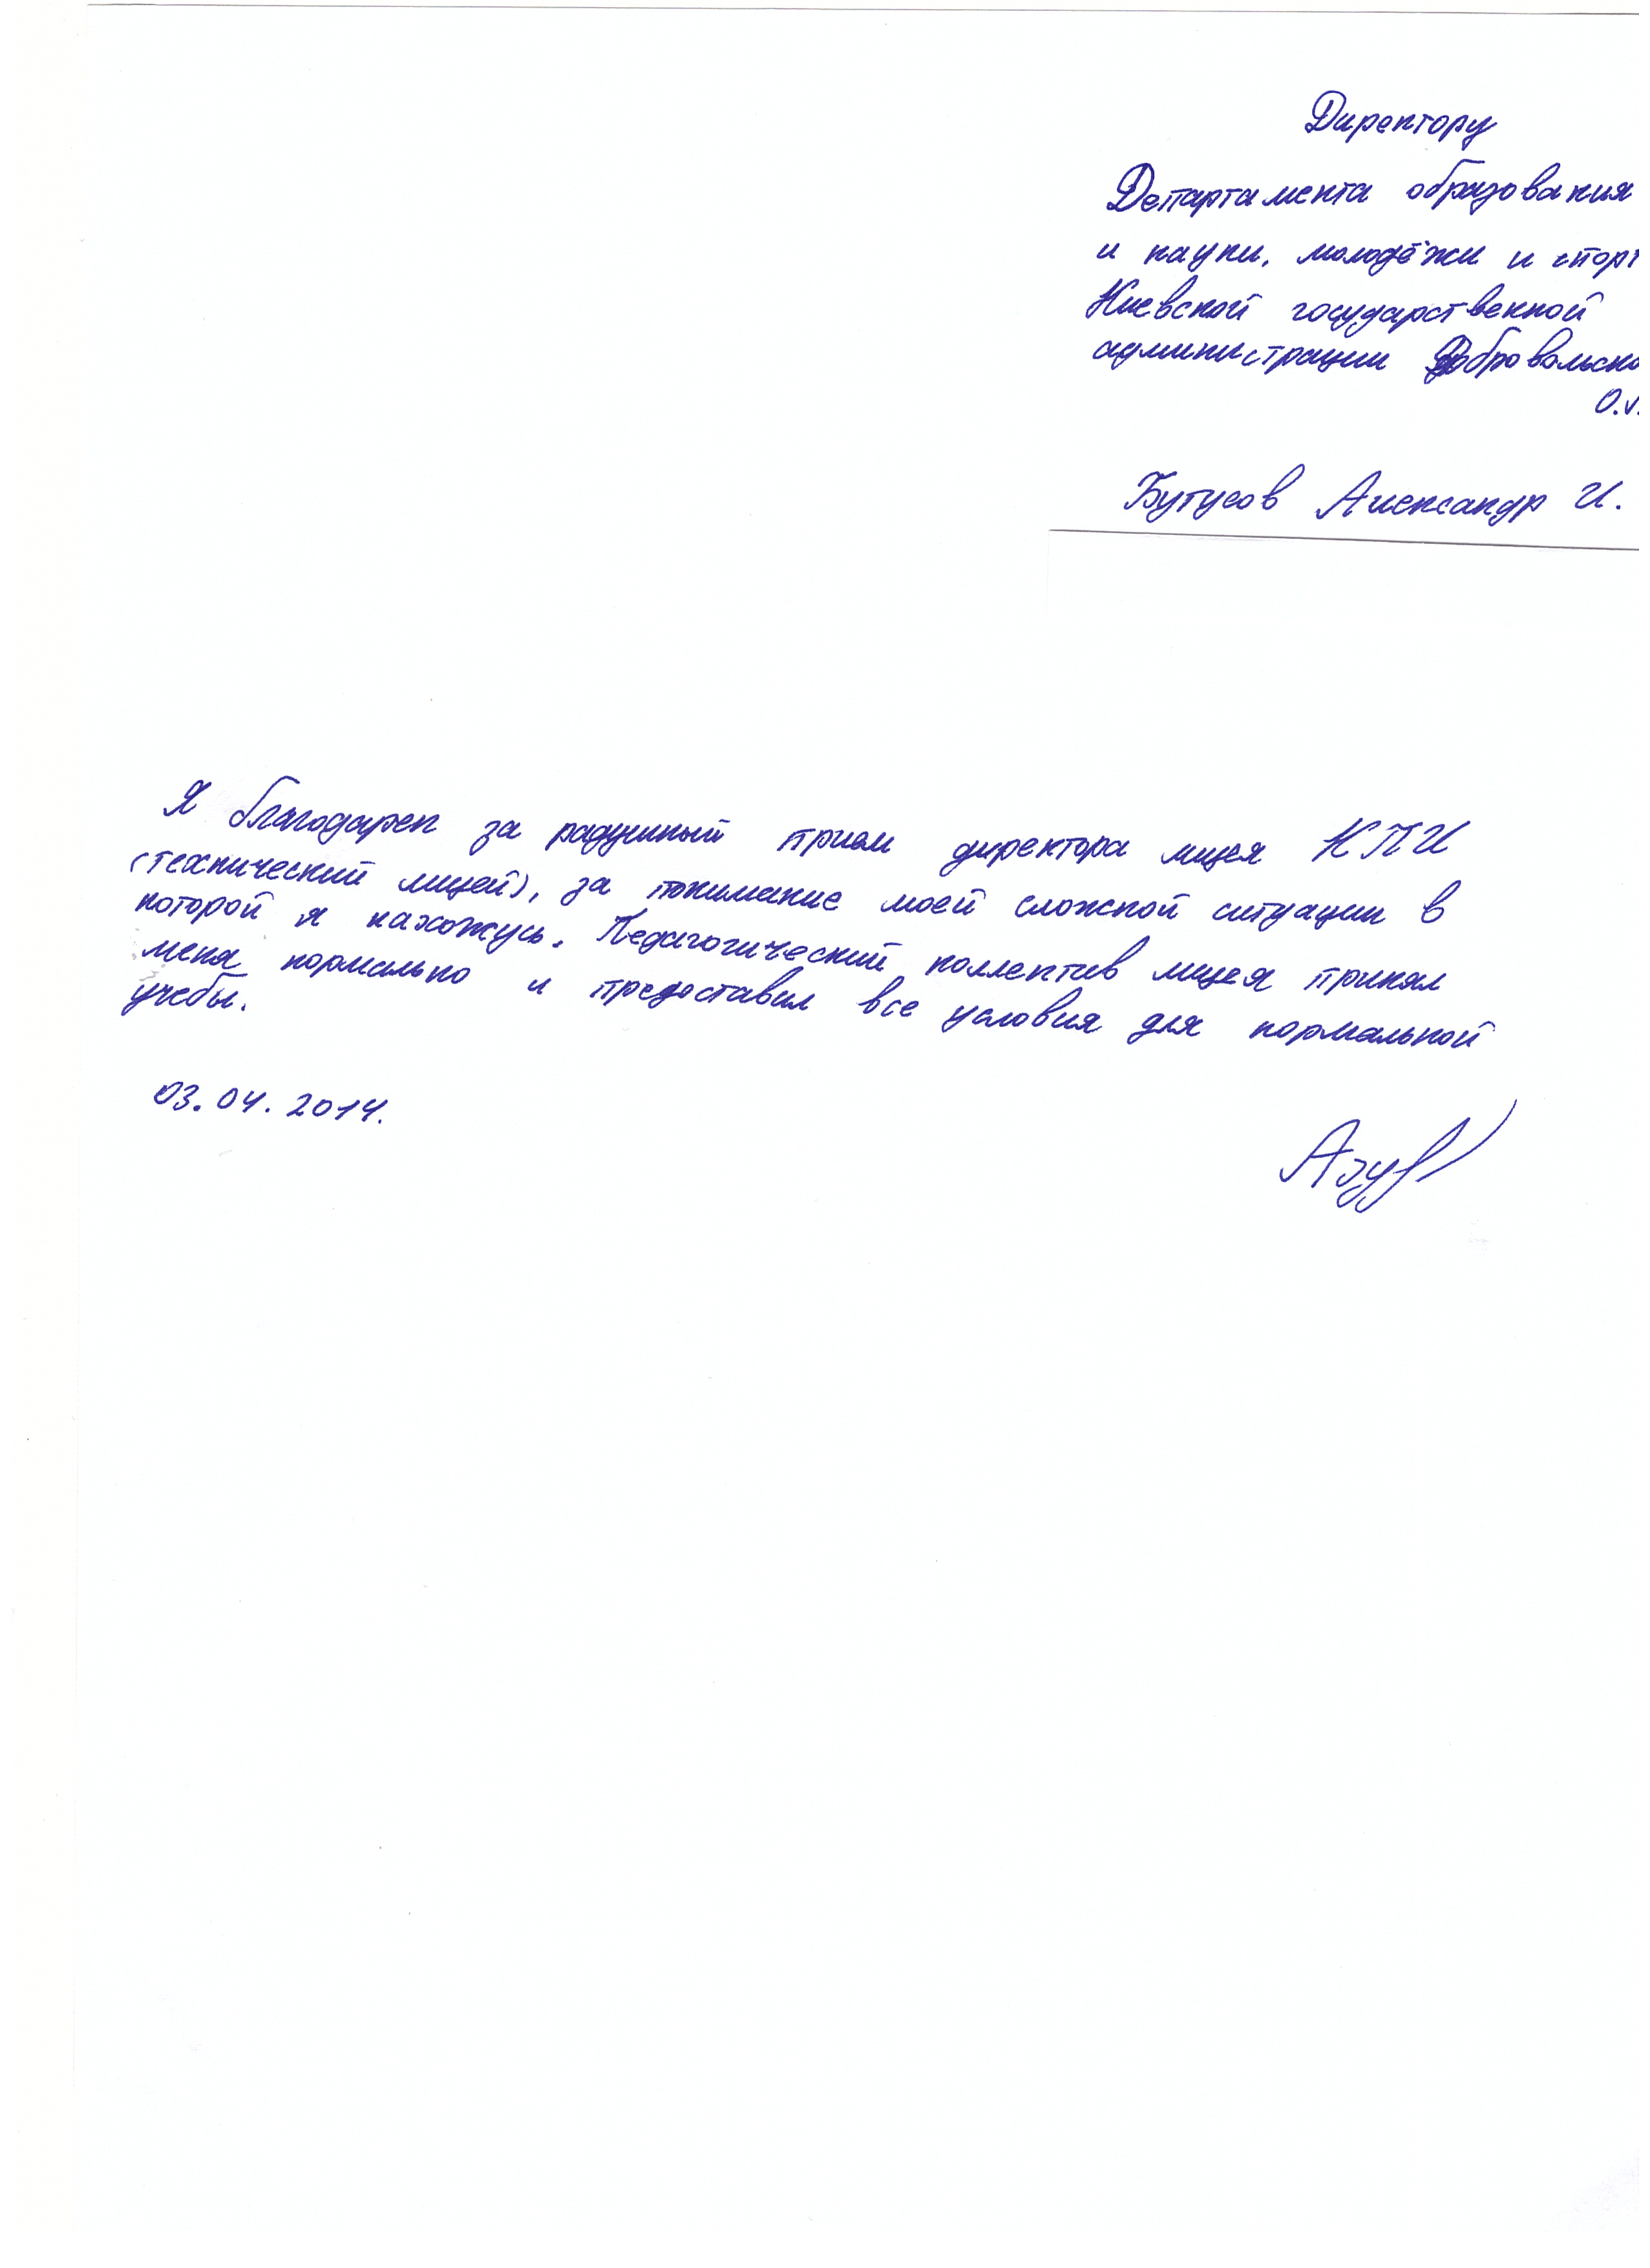 Директору
Департамента образования
и науки, молодёжи и спорт
Киевской государственной
администрации Добровольско
О.
Бутусов Александр И.
Я благодарен за радушный прием директора лицея КПИ
(технический лицей), за понимание моей сложной ситуации в
которой я нахожусь. Педагогический коллектив лицея принял
меня нормально и предоставил все условия для нормальной
учебы.
03.04.2014.